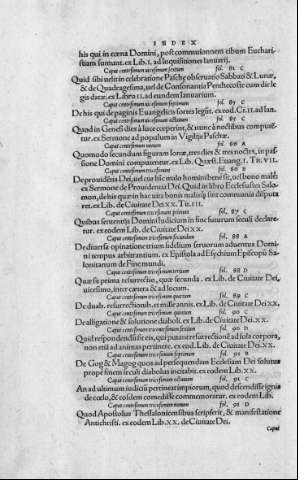 INDEX
his qui in cœna Domini, post communionem cibum Euchari-
stiam sumunt. ex Lib. I. ad Inquisitiones Ianuarij.
Caput centesimum vicesimum sextum fol. 81 C
Quid sibi velit in celebratione Paschę observatio Sabbati & Lunæ,
& de Quadragesima, vel de Consonantis Pentecostes cum die le
gis datæ. ex Libro II. ad eundem Ianuarium.
Caput centesimum vicesimum septimum fol. 83 C
De his qui de paginis Euangelicis sortes legut. ex eod. Ci. II. ad Ian.
Caput centesimum vicesimum octauum fol. 85 C
Quod in Genesi dies à luce cœperint, & nunc à noctibus computē-
tur. ex Sermone ad populum in Vigilijs Paschæ.
Caput centesimum vicesimum nonum fol. 86 A
Quomodo secundum figuram Ionæ, tres dies & tres noctes, in pas-
sione Domini computentur. ex Lib. Quæst. Euang. I. Te. VII.
Caput centesimum tricesimum fol. 86 B
De prouidentia Dei, aut cur hic modo homini bene sit, vel bono male.
ex Sermone de Prouidentia Dei. Quid in libro Ecclesiastes Salo-
mon, de his quæ in hac vita bonis malisque sunt communia disputa
ret. ex Lib. de Ciuitate Dei XX. To. III.
Caput centesimum tricesimum primum fol. 87 C
Quibus sententijs Domini iudicium in fine futurum seculi declare
tur. ex Lib. de Ciuitate Dei XX.
Caput centesimum tricesimum secundum fol. 88 A
De diuersa opinatione trium fidelium seruorum aduentus Domi-
ni tempus arbitrantium. ex Epistola ad Esychium Episcopū Sa-
lonitanum de Fine mundi.
Caput centesimum tricesimum tertium fol. 88 D
Quæ sit prima resurrectio, quæ secunda. ex Lib. de Ciuitate Dei,
vicesimo, inter cætera & ad locum.
Caput centesimum tricesimum quartum fol. 89 C
De duab. resurrectionib. et mille annis. ex Lib. de Ciuitate Dei XX.
Caput centesimum tricesimum quintum fol. 90 C
De alligatione & solutione diaboli. ex Lib. de Ciuitate Dei XX.
Caput centesimum tricesimum sextum fol. 90 D
Quid respondendū sit eis, qui putant resurrectionē ad sola corpora,
non etiā ad animas pertinere. ex eod. Lib. de Ciuitate Dei XX.
Caput centesimum tricesimum septimum fol. 91 B
De Gog & Magog quos ad persequendam Ecclesiam Dei solutus
prope finem seculi diabolus incitabit. ex eodem Lib. XX.
Caput centesimum tricesimum octauum fol. 91 C
An ad ultimum iudicij pertineat impiorum, quod descendisse ignis
de cœlo, & eosdem comedisse commemoratur. ex eodem Lib.
Caput centesimum tricesimum nonum fol. 91 D
Quod Apostolus Thessalonicensibus scripserit, & manifestatione
Antichristi. ex eodem Lib. XX. de Ciuitate Dei.
Caput